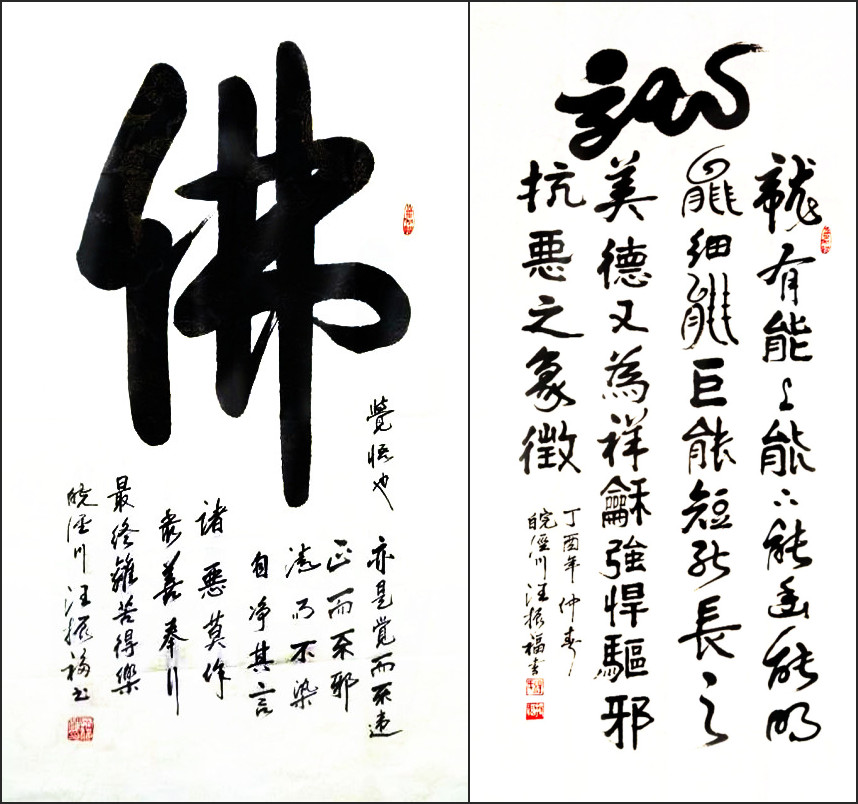 佛
覺悟也
亦是覚而不迷
正而不邪
清而不染
自净其言
諸悪莫作
衆善奉行
最終離苦得樂
皖涇川汪振福书
龍
龍有能上能下能幽能明
能細能巨能短能長之
美德又為祥龢強悍驅邪
抗悪之象徵
丁酉年仲春
皖涇川汪振福書